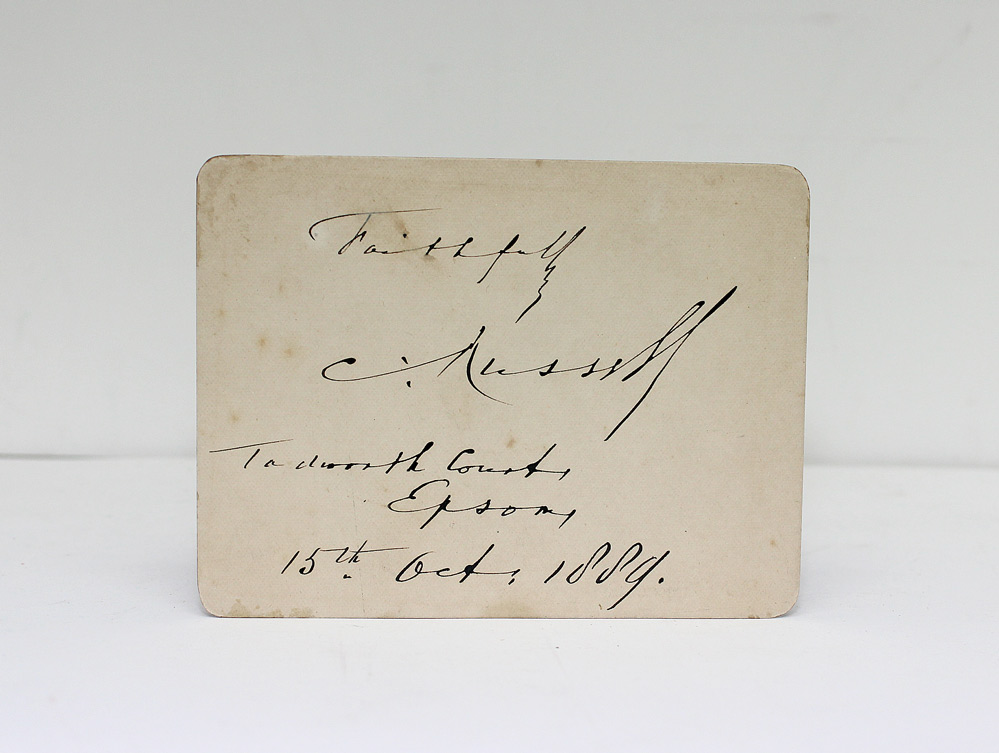 Faithfully
C. Russell
Tadworth Court,
Epsom,
15th Oct. 1889.